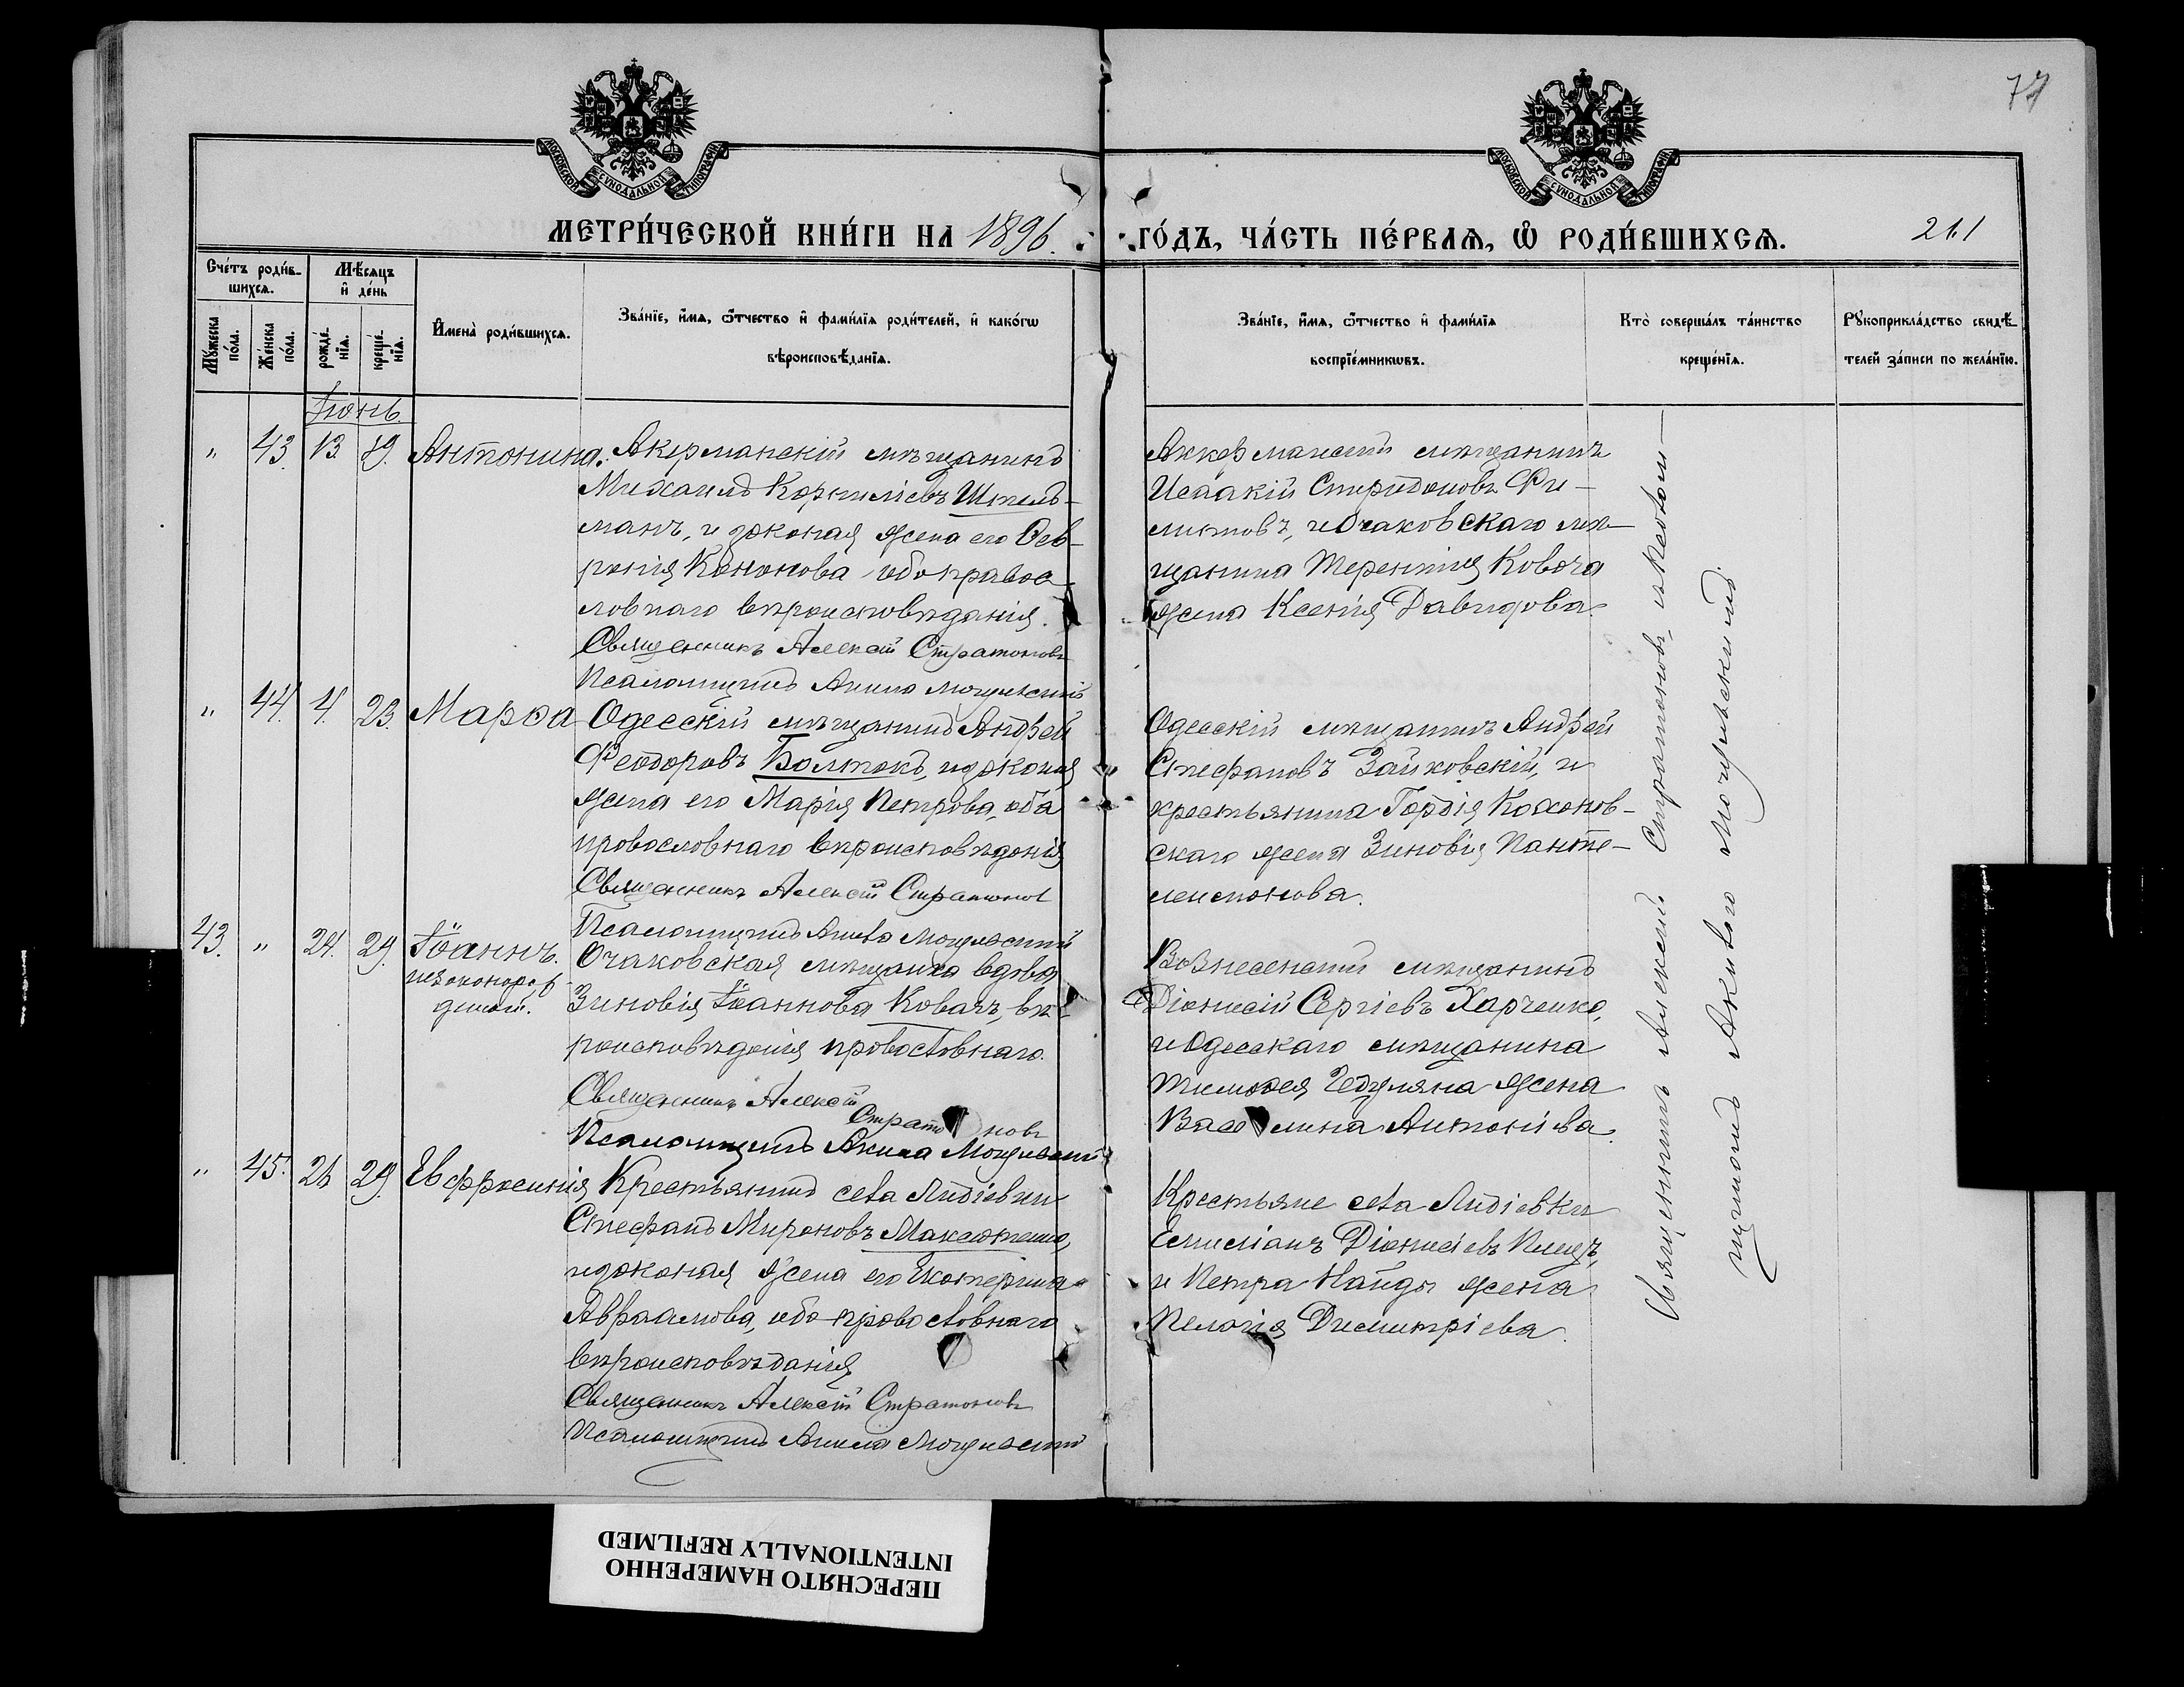 77
МОСКОВСКОЙ СѴНОДАЛЬНОЙ ТИПОГРАФІИ
МОСКОВСКОЙ СѴНОДАЛЬНОЙ ТИПОГРАФІИ
МЕТРИ́ЧЕСКОЙ КНИ́ГИ НА 1896. ГО́ДЪ, ЧА́СТЬ ПЕ́РВАѦ, Ѡ҆ РОДИ́ВШИХСѦ.
261
Сче́тъ роди́в-
шихсѧ.
Мѣ́сѧцъ
и҆ де́нь
Мꙋ́жеска по́ла.
Же́нска по́ла.
рожде́-
нїѧ.
креще́-
нїѧ.
И҆мена̀ роди́вшихсѧ.
Зва́нїе, и҆́мѧ, ѻ҆́тчество и҆ фами́лїѧ роди́телей, и҆ како́гѡ
вѣроисповѣ́данїѧ.
Зва́нїе, и҆́мѧ, ѻ҆́тчество и҆ фами́лїѧ
воспрїе́мникѡвъ.
Кто̀ соверша́лъ та́инство
креще́нїѧ.
Рꙋкоприкла́дство свидѣ́-
телей за́писи по жела́нїю.
Іюнь.
" 43. 13. 19. Антонина.
Акерманскій мѣщанинъ
Михаилъ Корниліевъ Штель-
манъ, и законая жена его Фев-
ронія Кононова оба правос-
лавнаго вѣроисповѣданія.
Священникъ Алексій Стратоновъ
Псаломщикъ Акила Могилевскій
Аккерманскій мѣщанинъ
Исаакій Спиридоновъ Фи-
липовъ, и Очаковскаго мѣ-
щанина Терентія Ковача
жена Ксенія Давидова.
" 44. 4. 23. Марѳа
Одесскій мѣщанинъ Андрей
Феодоровъ Болтокъ, и законая
жена его Марія Петрова, оба
православнаго вѣроисповѣданія
Священникъ Алексій Стратоновъ
Псаломщикъ Акила Могилевскій
Одесскій мѣщанинъ Андрей
Стефановъ Зайковскій, и
крестьянина Гордія Кохонов-
скаго жена Зиновія Панте-
леимонова.
43. " 24. 29. Іоаннъ.
незаконорож
денный.
Очаковская мѣщанка вдова
Зиновія Іоаннова Ковачъ, вѣ-
роисповѣданія православнаго.
Священникъ Алексій
Стратоновъ
Псаломщикъ Акила Могилевскій
Вознесенскій мѣщанинъ
Діонисій Сергіевъ Харченко,
и Одесскаго мѣщанина
Тимоѳея Чебуляна жена
Васелина Антоніева.
" 45. 26 29. Евфросинія
Крестьянинъ села Лидіевки
Стефанъ Мироновъ Максютенко,
и законая жена его Екатерина
Авраамова, оба православнаго
вѣроисповѣданія
Священникъ Алексій Стратоновъ
Псаломщикъ Акила Могилевскій
Крестьяне села Лидіевки
Емиліанъ Діонисіевъ
и Петра Найды жена
Пелагія Димитріева.
Священникъ Алексій Стратоновъ съ псалом-
щикомъ Акилою Могилевскимъ.
ПЕРЕСНЯТО НАМЕРЕННО
INTENTIONALLY REFILMED